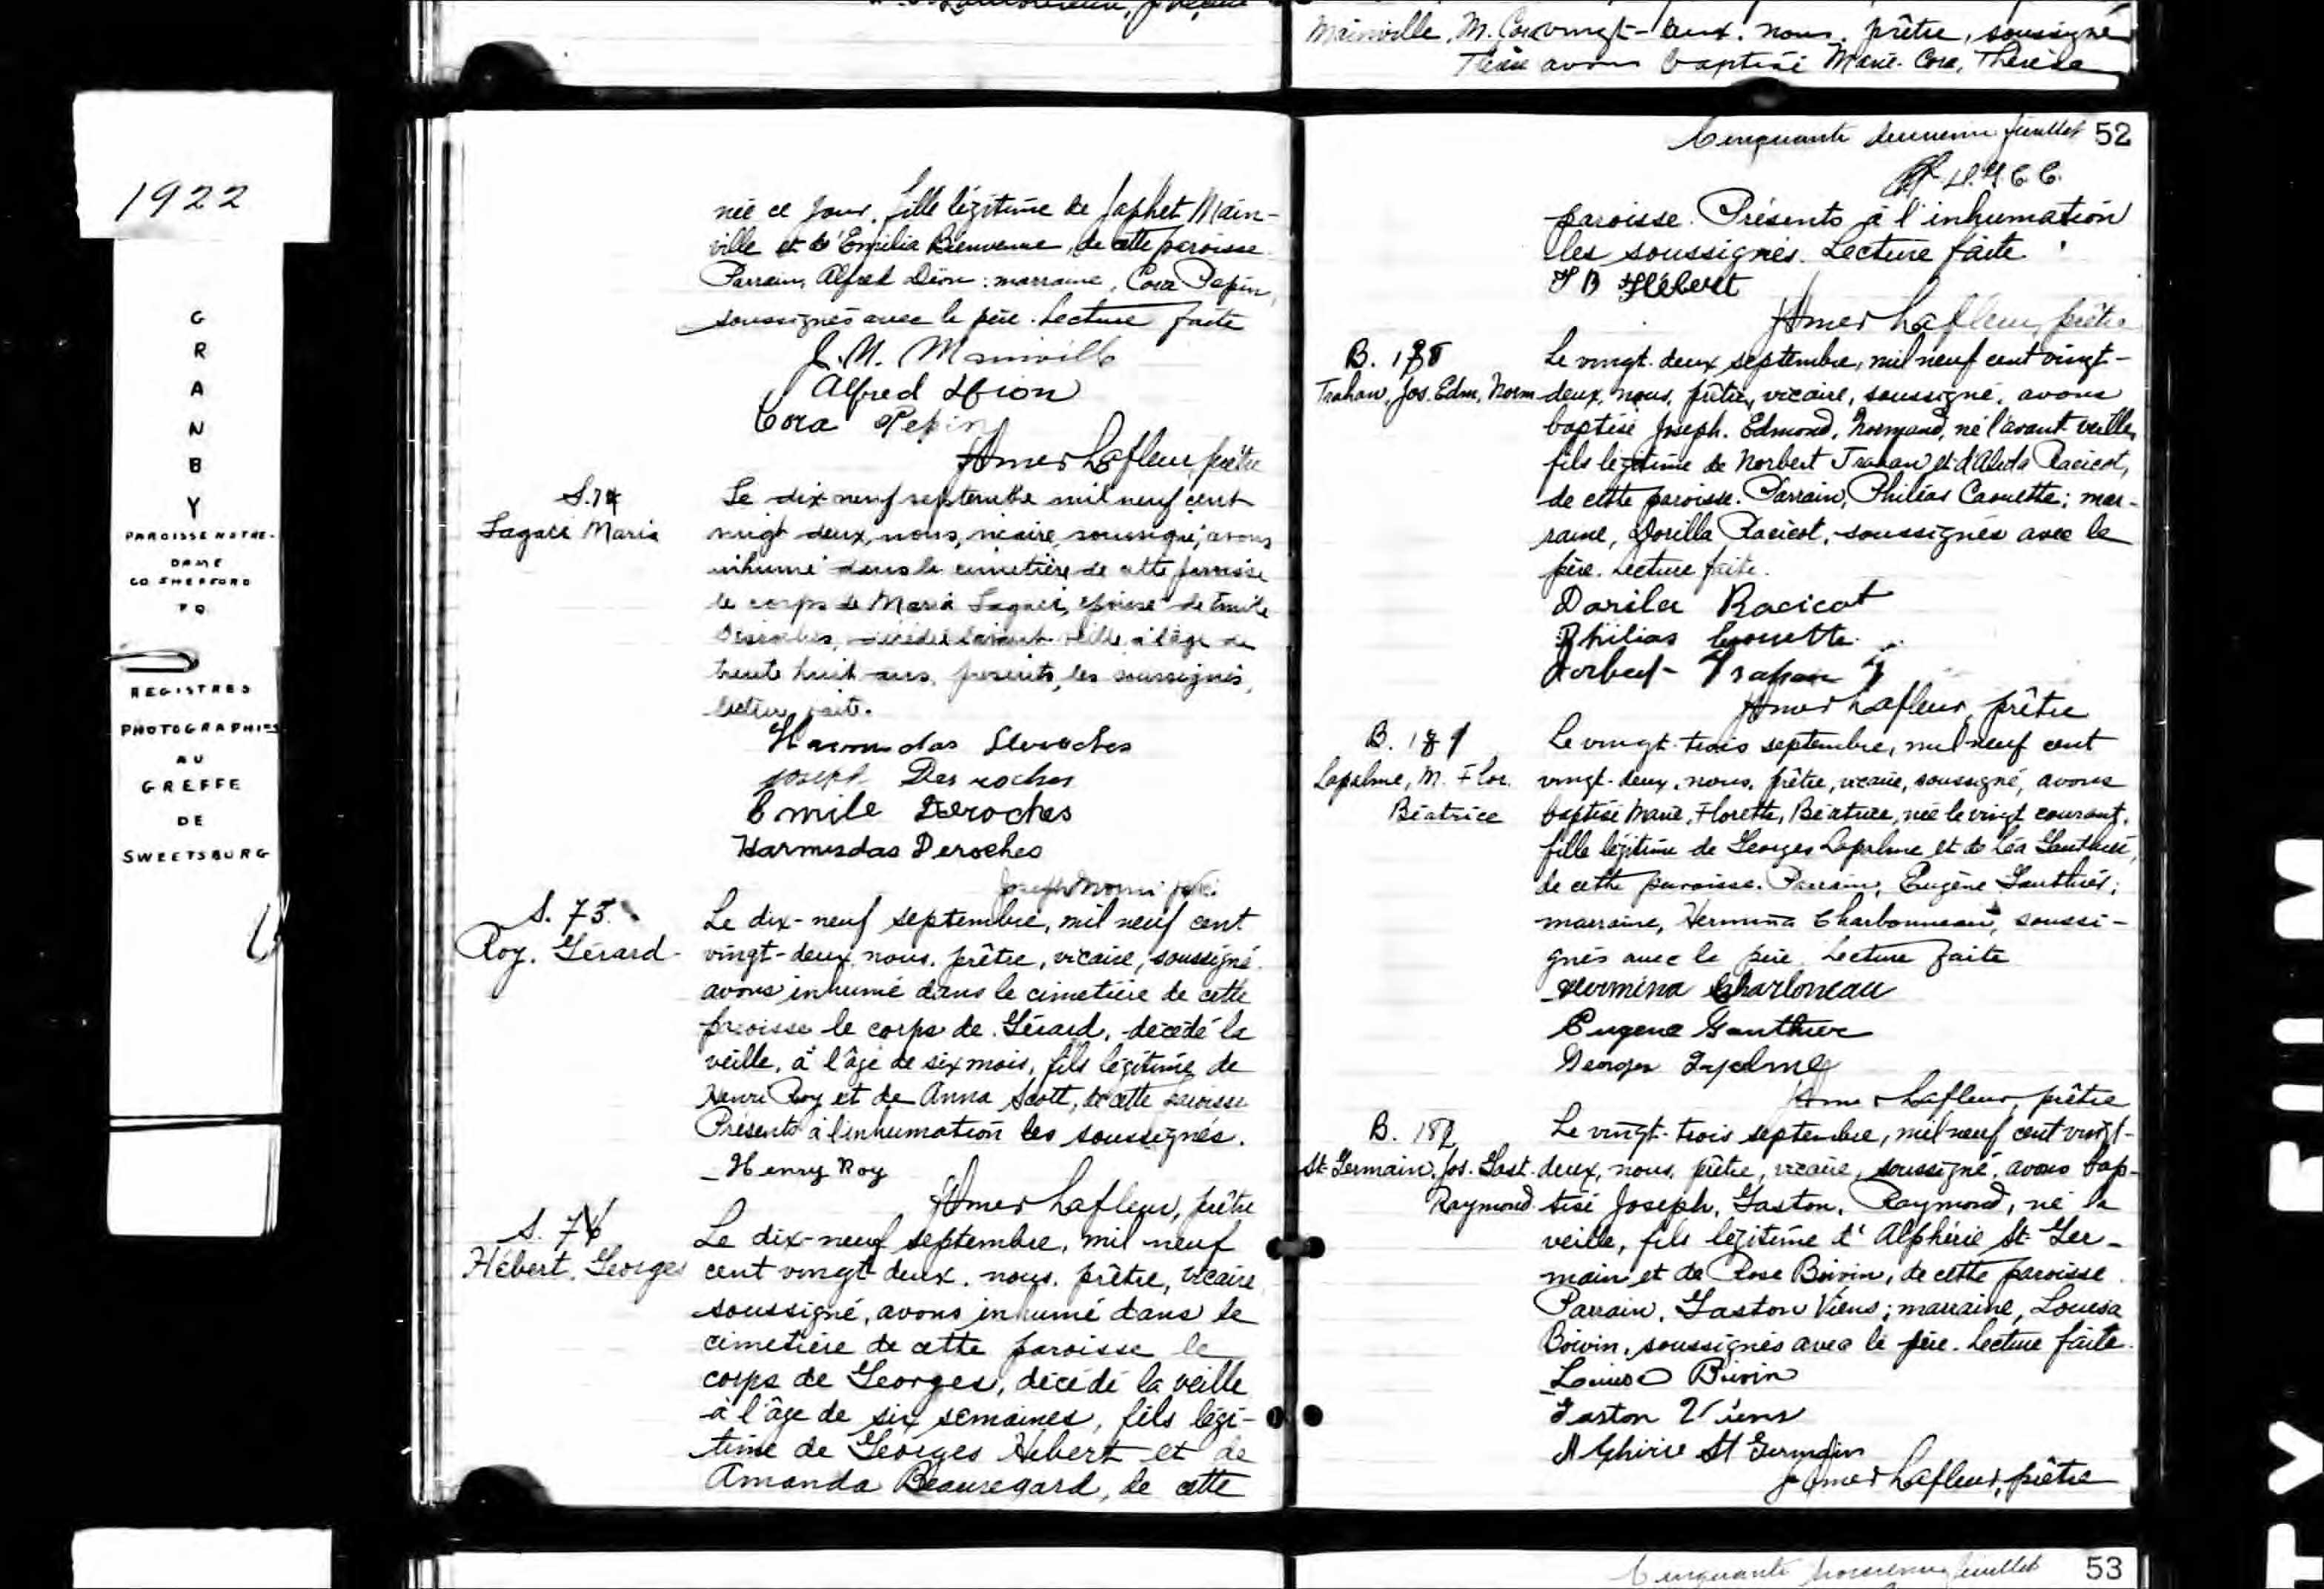 1922
G
R
A
N
B
Y
PAROISSE NOTRE-
DAME
CO SHEFFORD
P Q
REGISTRES
PHOTOGRAPHIES
AU
GREFFE
DE
SWEETSBURG
née ce jour, fille légitime de Japhet Main-
ville et d'Emilia Bienvenue, de cette paroisse.
Parrain, Alfred Dion; marraine, Cora Pepin,
soussignés avec le père. Lecture faite
J. N. Mainville
Alfred Dion
Cora Pepin
Lafleur, prêtre
S. 74
Lagacé Maria
Le dix neuf septembre mil neuf cent
vingt deux, nous, vicaire, soussigné, avons
inhumé dans le cimetière de cette paroisse
le corps de Maria Lagacé, épouse de Emile
décédée l'avant veille à l'âge de
trente huit ans, présents, les soussignés,
lecture faite.
Deroches
Joseph Des roches
Emile Deroches
Harmisdas Deroches
Joseph
S. 75.
Roy. Gérard
Le dix-neuf septembre, mil neuf cent
vingt-deux, nous, prêtre, vicaire, soussigné
avons inhumé dans le cimetière de cette
paroisse le corps de Gérard, décédé la
veille, à l'âge de six mois, fils légitime de
Henri Roy et de Anna Scott, de cette paroisse
Présents à l'inhumation les soussignés.
Henry Roy
Lafleur, prêtre
S. 76
Hébert, Georges
Le dix-neuf septembre, mil neuf
cent vingt deux, nous, prêtre, vicaire
soussigné, avons inhumé dans le
cimetière de cette paroisse le
corps de Georges, décédé la veille
à l'âge de six semaines, fils légi-
time de Georges Hébert et de
Amanda Beauregard, de cette
Mainville, M. Cora vingt-deux, nous, prêtre, soussigné
avons baptisé Marie-Cora, Thérèse
Cinquante deuxième feuillet 52
paroisse. Présents à l'inhumation
les soussignés. Lecture faite.
Hébert
Lafleur, prêtre
B. 180
Trahan, Jos. Edm. Norm
Le vingt-deux septembre, mil neuf cent vingt-
deux, nous, prêtre, vicaire, soussigné, avons
baptisé Joseph, Edmond, Normand, né l'avant veille,
fils légitime de Norbert Trahan et d'Aleda Racicot,
de cette paroisse. Parrain, Philias Caouette; mar-
raine, Dorilla Racicot, soussignés avec le
père. Lecture faite.
Dorila Racicot
Philias
Lafleur, prêtre
B. 181
Lapalme, M. Flor.
Béatrice
Le vingt-trois septembre, mil neuf cent
vingt-deux, nous, prêtre, vicaire, soussigné, avons
baptisé Marie, Florette, Béatrice, née le vingt courant,
fille légitime de Georges Lapalme et de Léa Gauthier,
de cette paroisse. Parrain, Eugène Gauthier;
marraine, Hermina Charbonneau, soussi-
gnés avec le père. Lecture faite
Hermina Charboneau
Eugene Gauthier
Georges
Lafleur, prêtre
B. 182
St-Germain, Jos. Gast.
Raymond
Le vingt-trois septembre, mil neuf cent vingt-
deux, nous, prêtre, vicaire, soussigné, avons bap-
tisé Joseph, Gaston, Raymond, né la
veille, fils légitime d'Alphérie St-Ger-
main et de Rose Boivin, de cette paroisse.
Parrain, Gaston Viens; marraine, Louisa
Boivin, soussignés avec le père. Lecture faite.
Boivin
Gaston Viens
St Germain
Lafleur, prêtre
Cinquante troisième feuillet 53